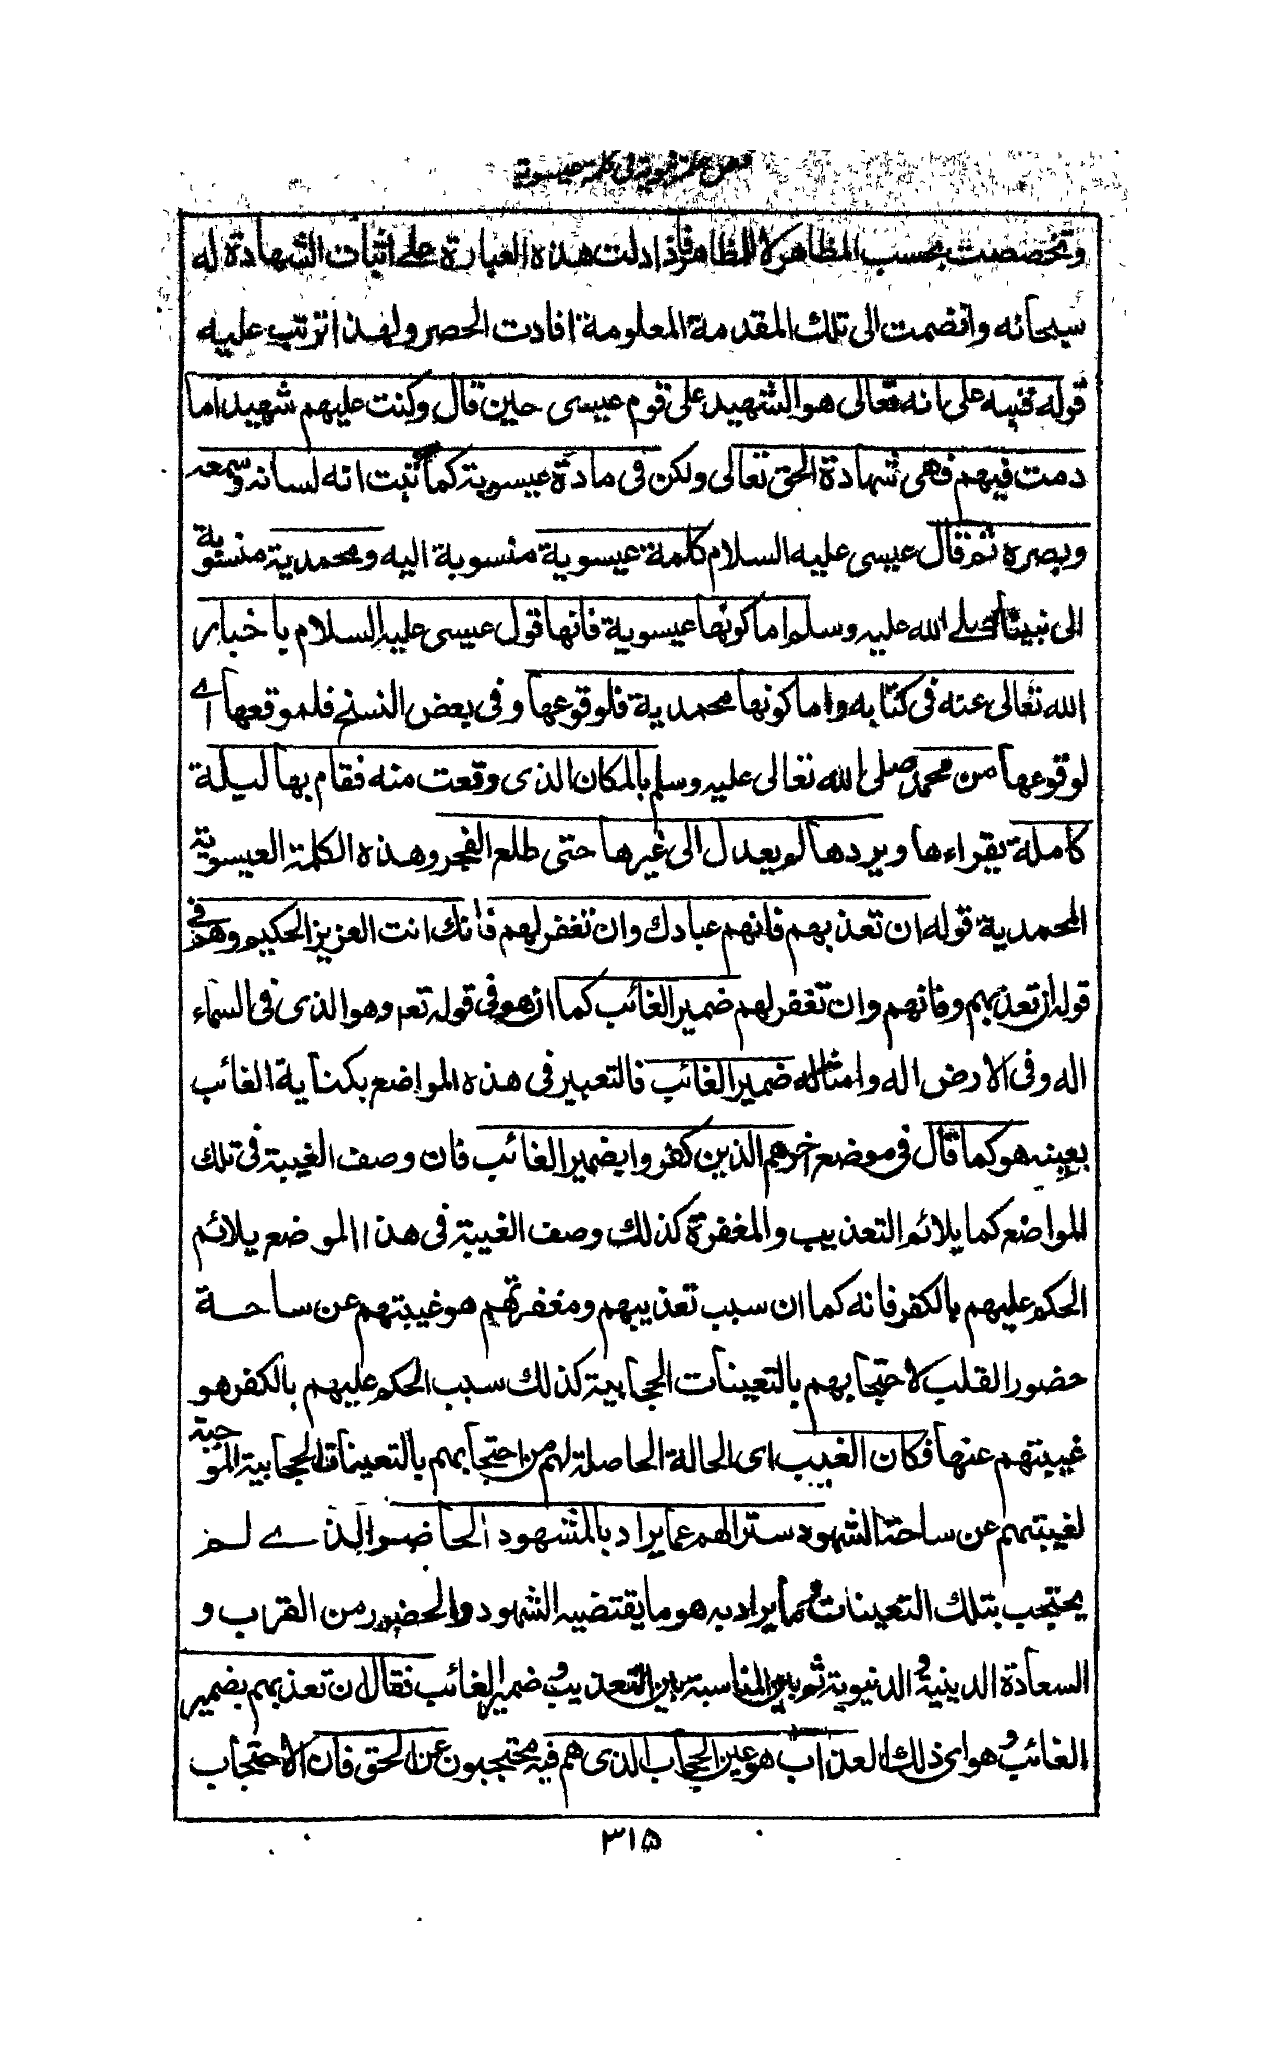 فص حكمة نبوية فى كلمة عيسوية
وتخصصت بحسب المظاهر لا المظاهر فاذا دلت هذه العبارة على اثبات الشهادة له
سبحانه وانضمت الى تلك المقدمة المعلومة افادت الحصر ولهذا ترتب عليه
قوله تنبيه على انه تعالى هو الشهيد على قوم عيسى حين قال وكنت عليهم شهيدا ما
دمت فيهم فهى شهادة الحق تعالى ولكن فى مادة عيسوية كما ثبت انه لسانه وسمعه
وبصره ثم قال عيسى عليه السلام كلمة عيسوية منسوبة اليه ومحمدية منسوبة
الى نبينا صلے الله عليه وسلم اما كونها عيسوية فانها قول عيسى عليه السلام باخبار
الله تعالى عنه فى كتابه واما كونها محمدية فلوقوعها وفى بعض النسخ فلموقعها اے
لوقوعها من محمد صلى الله تعالى عليه وسلم بالمكان الذى وقعت منه فقام بها ليلة
كاملة يقراءها ويرددها لم يعدل الى غيرها حتى طلع الفجر وهذه الكلمة العيسوية
المحمدية قوله ان تعذبهم فانهم عبادك وان تغفر لهم فانك انت العزيز الحكيم وهم فى
قوله ان تعذبهم وفانهم وان تغفر لهم ضمير الغائب كما ان هو فى قوله تعـ وهو الذى فى السماء
اله وفى الارض اله وامثاله ضمير الغائب فالتعبير فى هذه المواضع بكناية الغائب
بعينه هو كما قال فى موضع اخر هم الذين كفروا بضمير الغائب فان وصف الغيبة فى تلك
المواضع كما يلائم التعذيب والمغفرة كذلك وصف الغيبة فى هذا الموضع يلائم
الحكم عليهم بالكفر فانه كما ان سبب تعذيبهم ومغفرتهم هو غيبتهم عن ساحة
حضور القلب لاحتجابهم بالتعينات الحجابية كذلك سبب الحكم عليهم بالكفر هو
غيبتهم عنها فكان الغيب اى الحالة الحاصلة لهم من احتجابهم بالتعينات الحجابية الموجبة
لغيبتهم عن ساحة الشهود سترا لهم عما يراد بالمشهود الحاضر الذے لم
يحتجب بتلك التعينات مما يراد به هو ما يقتضيه الشهود والحضور من القرب و
السعادة الدينية والدنيوية ثم بين المناسبة بين التعذيب وضمير الغائب فقال ان تعذبهم بضمير
الغائب وهو اى ذلك العذاب هو عين الحجاب الذى هم فيه محتجبون عن الحق فان الاحتجاب
٣١٥